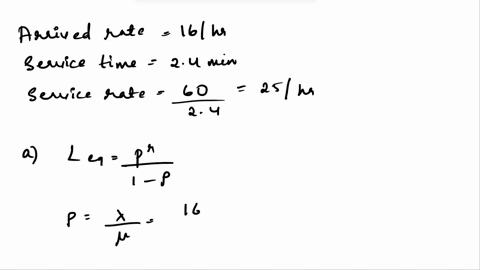 Arrived rate = 16/hr
Service time = 2.4 min
Service rate = 60/2.4 = 25/hr
a) Leq = p^r/1-p
p = λ/μ = 16